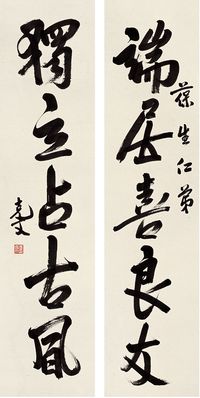 端居喜良友
葆生仁弟
獨立占古風
克文